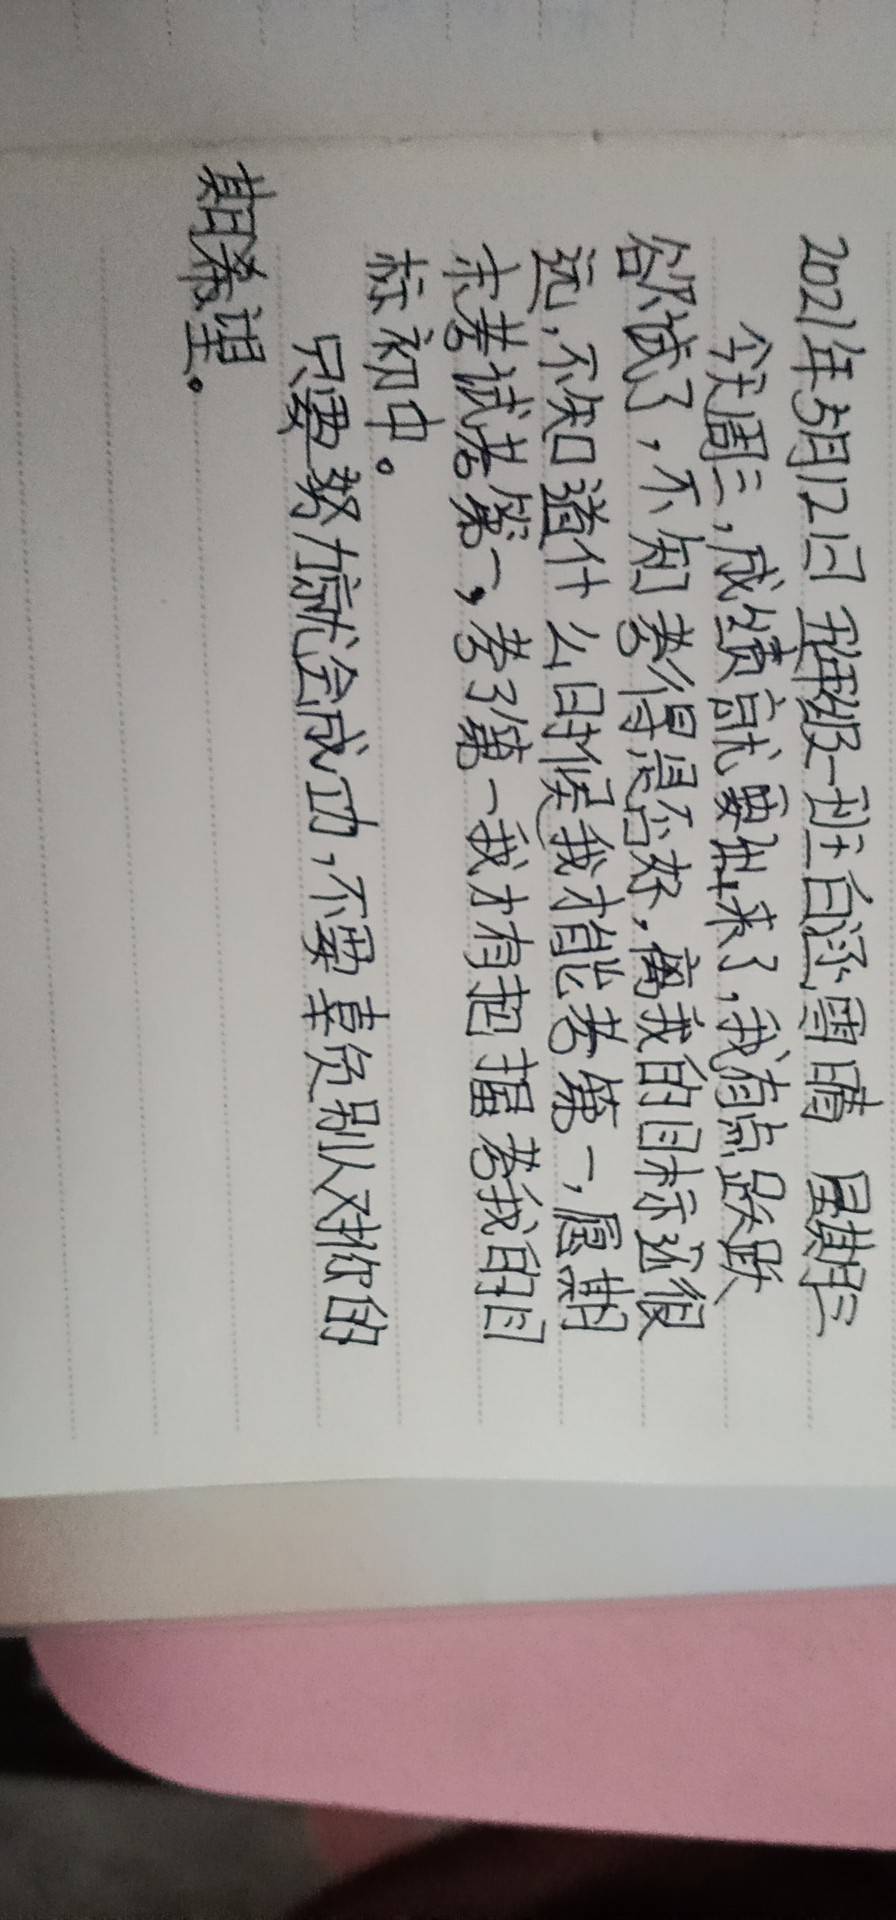 2021年5月12日 五年级一班 白逐雪晴 星期三
今天周三,成绩就要出来了,我有点跃跃
欲试了,不知考得是否好,离我的目标还很
远,不知道什么时候我才能考第一,愿期
末考试考第一,考了第一我才有把握考我的目
标初中。
只要努力就会成功,不要辜负别人对你的
期希望。